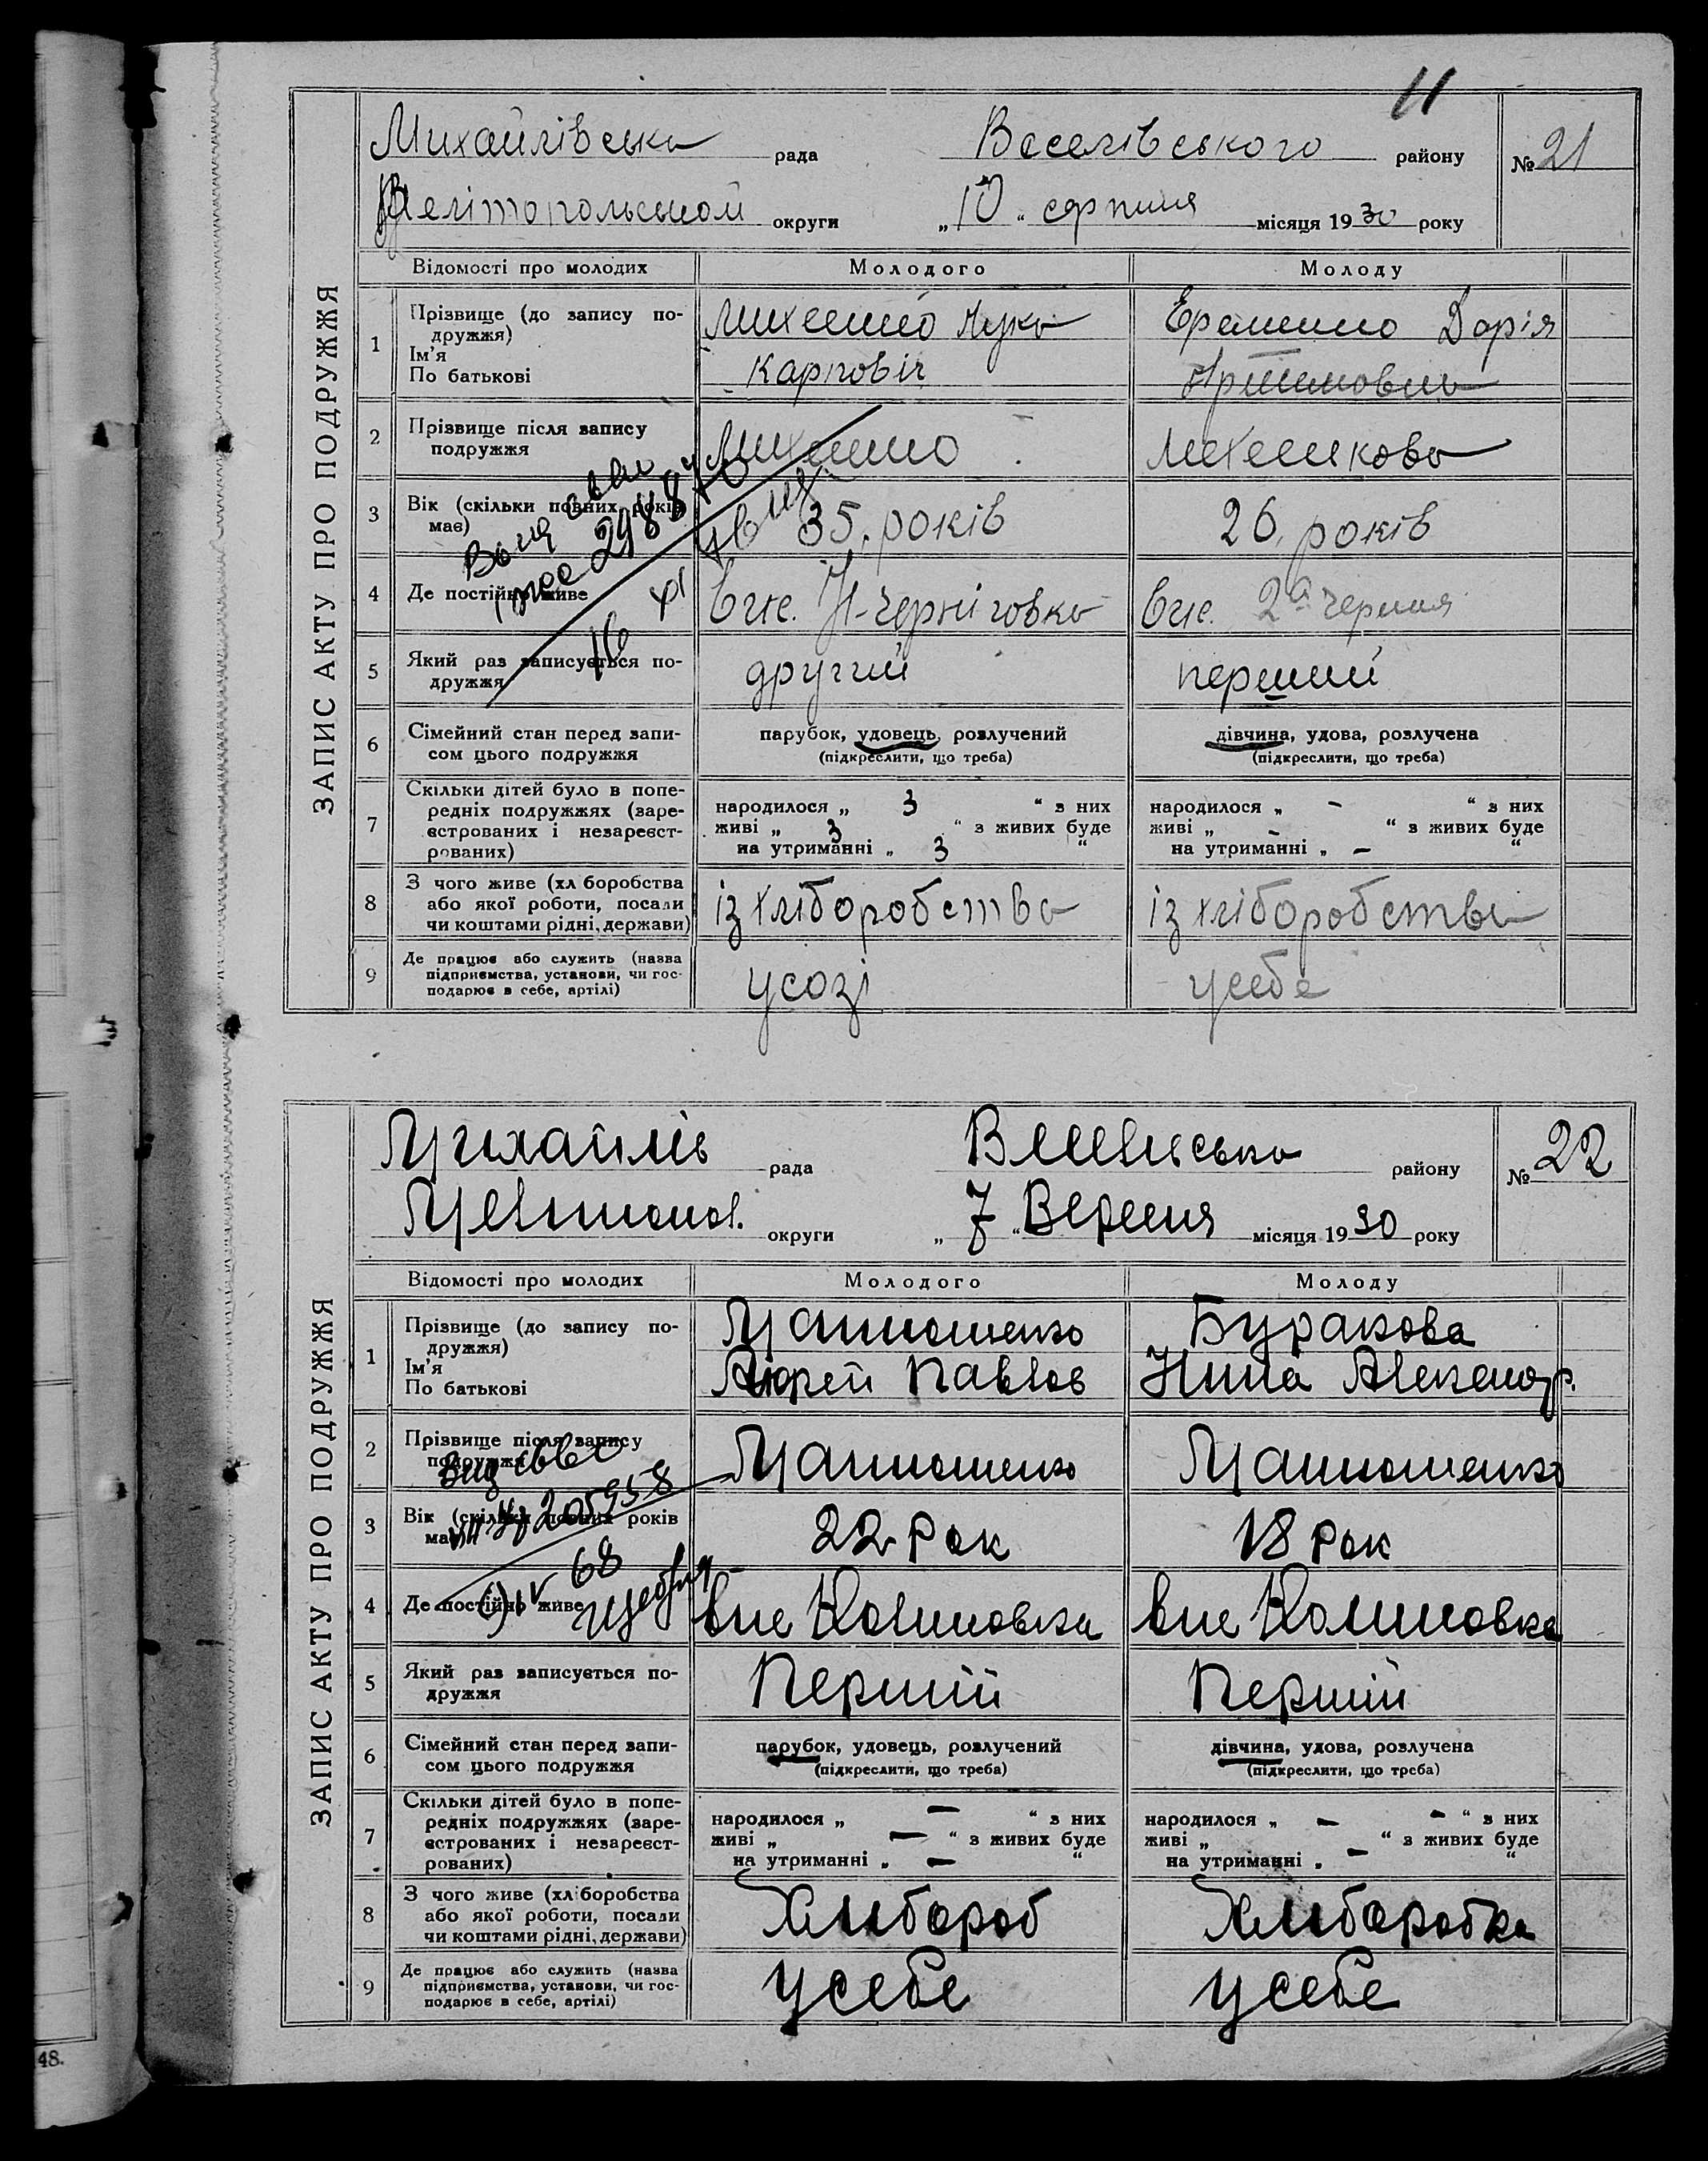 11
Михайлівська рада Веселівського району № 21
Мелітопольської округи „10“ серпня місяця 1930 року
ЗАПИС АКТУ ПРО ПОДРУЖЖЯ
Відомості про молодих Молодого Молоду
1 Прізвище (до запису по-
дружжя)
Ім'я
По батькові
Карповіч
Дарія
2 Прізвище після запису
подружжя
3 Вік (скільки повних років
має)
35. років
26. років
4 Де постійно живе
вис. Н-Черніговка
вис. 2а
16 XI
5 Який раз записується по-
дружжя
другий
перший
6 Сімейний стан перед запи-
сом цього подружжя
парубок, удовець, розлучений
(підкреслити, що треба)
дівчина, удова, розлучена
(підкреслити, що треба)
7 Скільки дітей було в попе-
редніх подружжях (заре-
єстрованих і незареєст-
рованих)
народилося „ 3 “ з них
живі „ 3 “ з живих буде
на утриманні „ 3 “
народилося „ - “ з них
живі „ - “ з живих буде
на утриманні „ - “
8 З чого живе (хліборобства
або якої роботи, посади
чи коштами рідні, держави)
із хліборобства
із хліборобства
9 Де працює або служить (назва
підприємства, установи, чи гос-
подарює в себе, артілі)
усозі
усебе
Михайлів рада району № 22
округи „7“ Вересня місяця 1930 року
ЗАПИС АКТУ ПРО ПОДРУЖЖЯ
Відомості про молодих Молодого Молоду
1 Прізвище (до запису по-
дружжя)
Ім'я
По батькові
Буракова
Андрей Павлов
Нина Александр.
2 Прізвище після запису
подружжя
3 Вік (скільки повних років
має)
205958
22 рок
18 рок
4 Де постійно живе
68
вис Калиновка
вис Калиновка
5 Який раз записується по-
дружжя
Перший
Перший
6 Сімейний стан перед запи-
сом цього подружжя
парубок, удовець, розлучений
(підкреслити, що треба)
дівчина, удова, розлучена
(підкреслити, що треба)
7 Скільки дітей було в попе-
редніх подружжях (заре-
єстрованих і незареєст-
рованих)
народилося „ - “ з них
живі „ - “ з живих буде
на утриманні „ - “
народилося „ - - “ з них
живі „ “ з живих буде
на утриманні „ - “
8 З чого живе (хліборобства
або якої роботи, посади
чи коштами рідні, держави)
Хлибороб
Хлиборобка
9 Де працює або служить (назва
підприємства, установи, чи гос-
подарює в себе, артілі)
усебе
усебе
48.